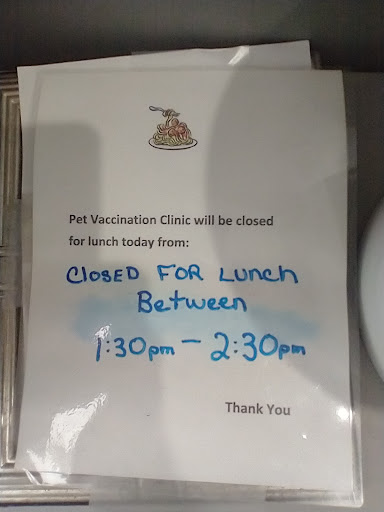 Pet Vaccination Clinic will be closed
for lunch today from:
CLOSED FOR LUNCH
Between
1:30pm - 2:30pm
Thank You